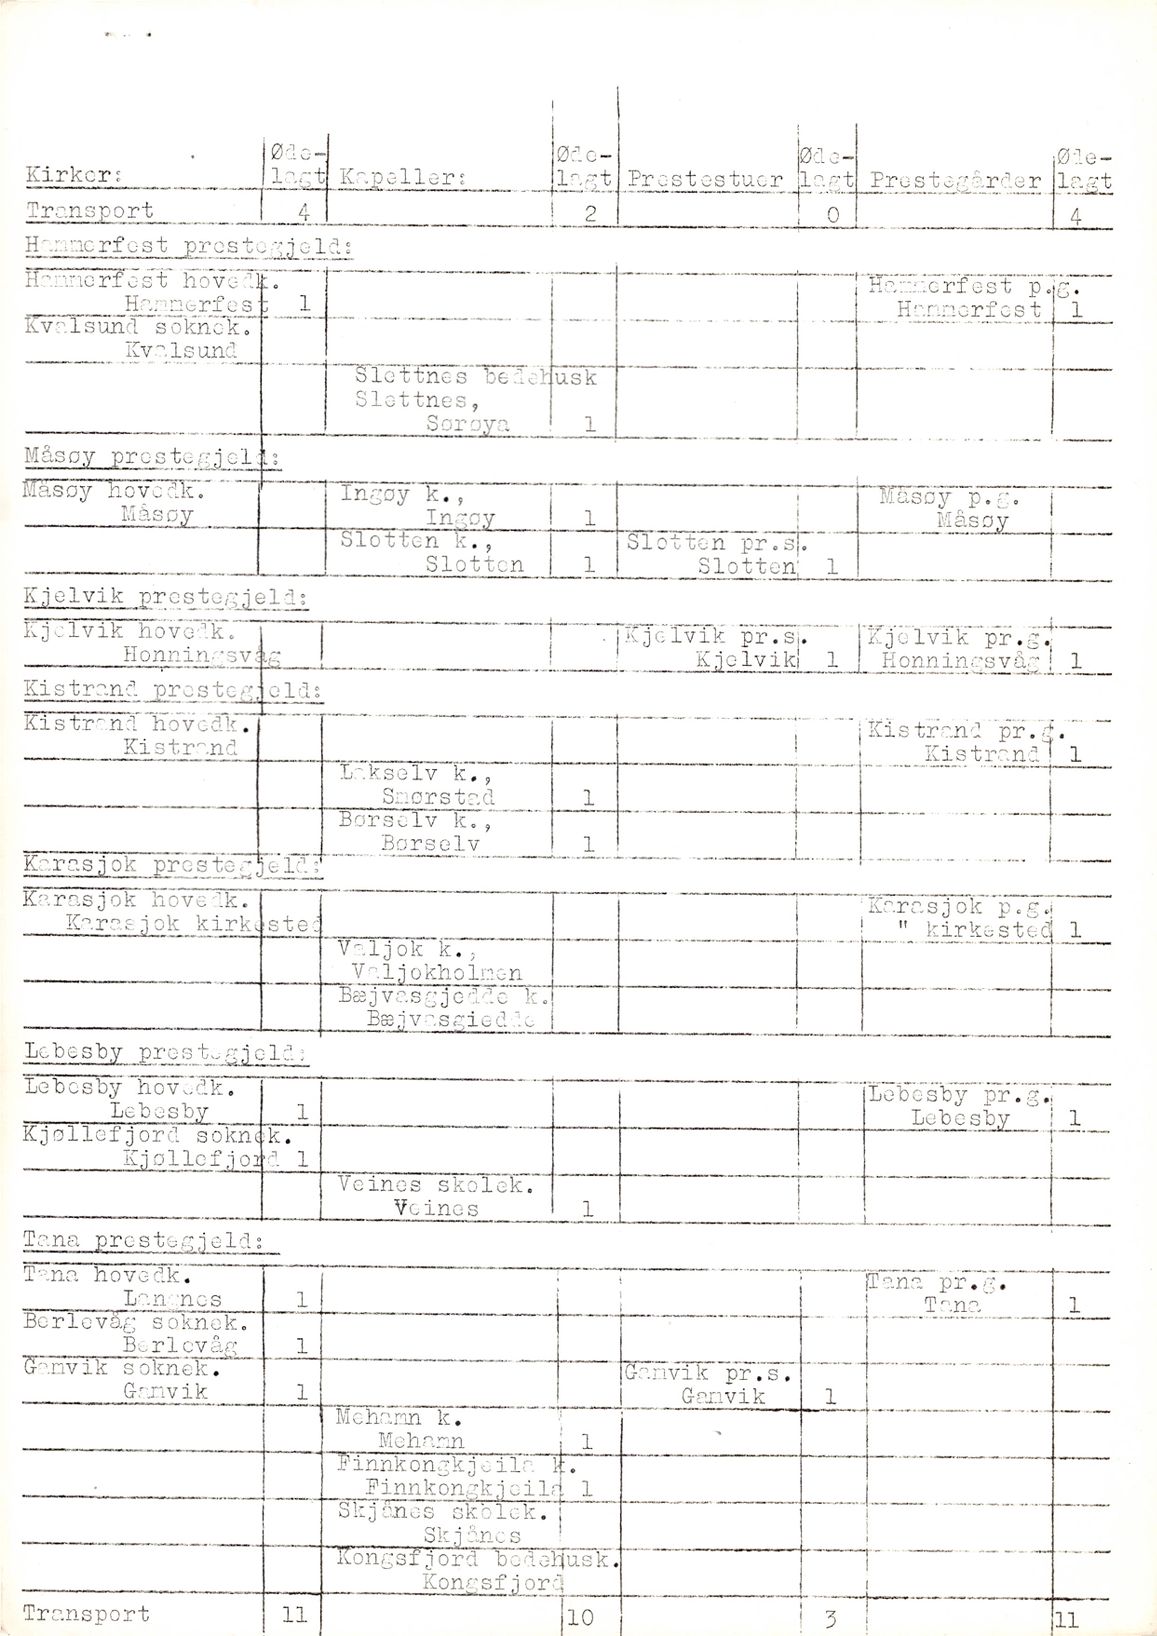 Øde- Øde- Øde- Øde-
Kirker: lagt Kapeller: lagt Prestestuer lagt Prestegårder lagt
Transport 4 2 0 4
Hammerfest prestegjeld:
Hammerfest hovedk. Hammerfest p.g.
Hammerfest 1 Hammerfest 1
Kvalsund soknek.
Kvalsund
Slettnes bedehusk
Slettnes,
Sørøya 1
Måsøy prestegjeld:
Måsøy hovedk. Ingøy k., Måsøy p.g.
Måsøy Ingøy 1 Måsøy
Slotten k., Slotten pr.s.
Slotten 1 Slotten 1
Kjelvik prestegjeld:
Kjelvik hovedk. Kjelvik pr.s. Kjelvik pr.g.
Honningsvåg Kjelvik 1 Honningsvåg 1
Kistrand prestegjeld:
Kistrand hovedk. Kistrand pr.g.
Kistrand Kistrand 1
Lakselv k.,
Smørstad 1
Børselv k.,
Børselv 1
Karasjok prestegjeld:
Karasjok hovedk. Karasjok p.g.
Karasjok kirkested " kirkested 1
Valjok k.,
Valjokholmen
Bæjvasgjedde k.
Bæjvasgiedde
Lebesby prestegjeld:
Lebesby hovedk. Lebesby pr.g.
Lebesby 1 Lebesby 1
Kjøllefjord soknek.
Kjøllefjord 1
Veines skolek.
Veines 1
Tana prestegjeld:
Tana hovedk. Tana pr.g.
Langnes 1 Tana 1
Berlevåg soknek.
Berlevåg 1
Gamvik soknek. Gamvik pr.s.
Gamvik 1 Gamvik 1
Mehamn k.
Mehamn 1
Finnkongkjeila k.
Finnkongkjeila 1
Skjånes skolek.
Skjånes
Kongsfjord bedehusk.
Kongsfjord
Transport 11 10 3 11